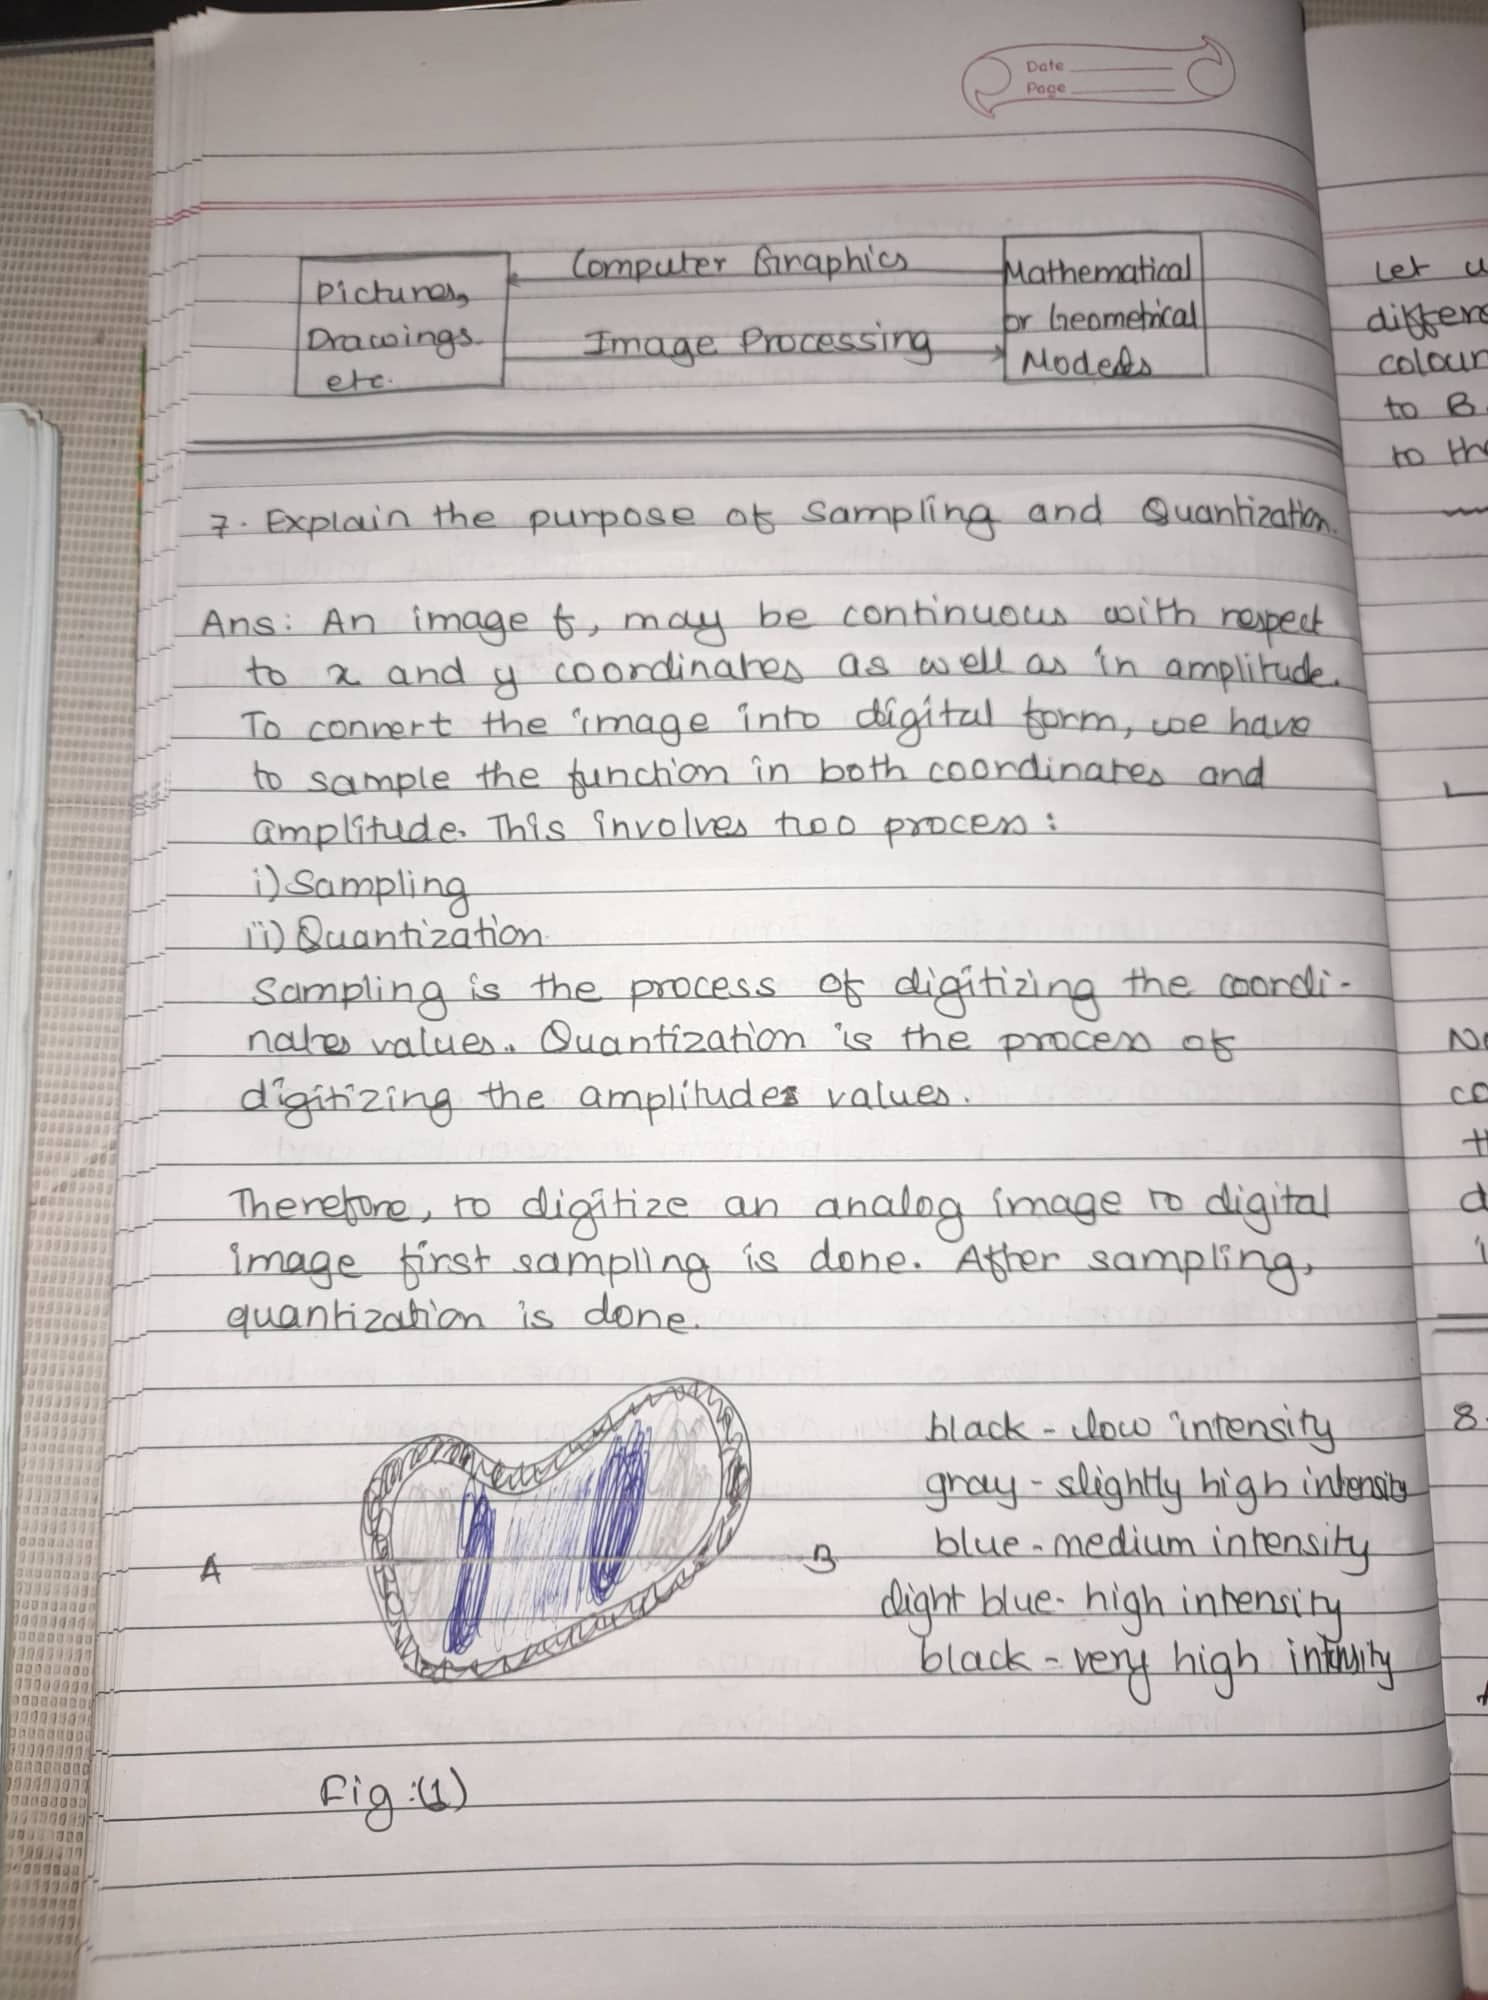 Date
Page
Computer Graphics
Pictures,
Drawings
etc.
Image Processing
Mathematical
or Geometrical
Models
7. Explain the purpose of Sampling and Quantization.
Ans: An image f, may be continuous with respect
to x and y coordinates as well as in amplitude.
To convert the image into digital form, we have
to sample the function in both coordinates and
amplitude. This involves two process:
i) Sampling
ii) Quantization.
Sampling is the process of digitizing the coordi-
nates values. Quantization is the process of
digitizing the amplitudes values.
Therefore, to digitize an analog image to digital
image first sampling is done. After sampling,
quantization is done.
black - low intensity
gray - slightly high intensity
blue - medium intensity
light blue - high intensity
black - very high intensity
A
B
Fig:(1)
Let
colour
to B.
to
8.